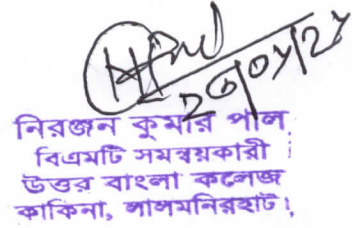 নিরঞ্জন কুমার পাল
বিএমটি সমন্বয়কারী
উত্তর বাংলা কলেজ
কাকিনা, লালমনিরহাট।